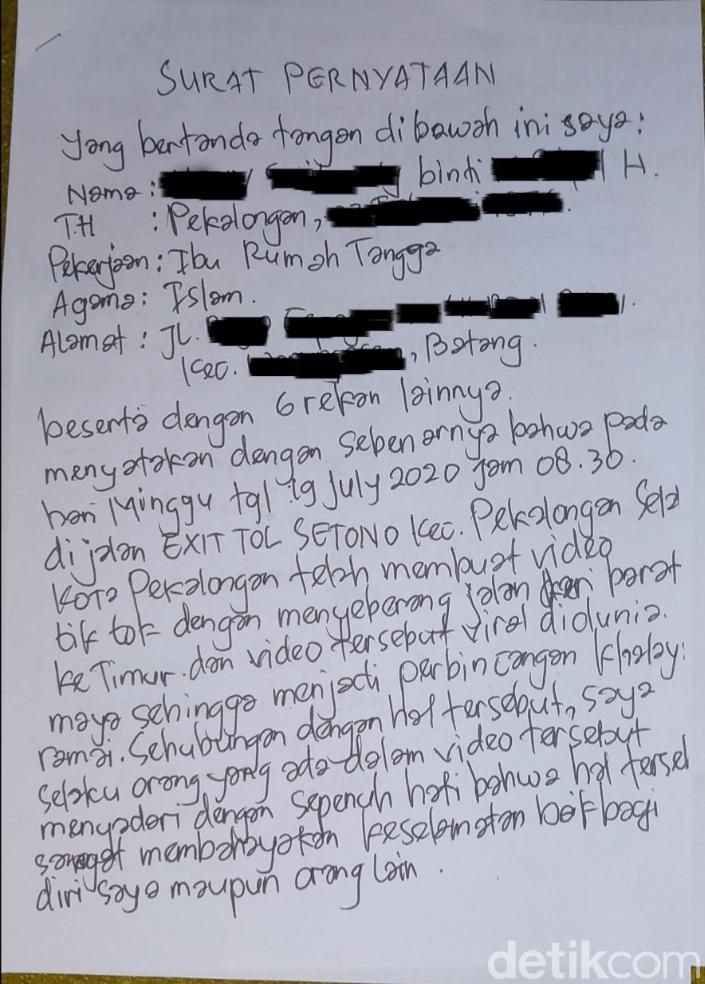 SURAT PERNYATAAN
Yang bertanda tangan dibawah ini saya:
Nama : binti H.
T.H : Pekalongan,
Pekerjaan : Ibu Rumah Tangga
Agama : Islam.
Alamat : JL.
Kec. , Batang.
beserta dengan 6 rekan lainnya.
menyatakan dengan sebenarnya bahwa pada
hari Minggu tgl 19 July 2020 jam 08.30.
di jalan EXIT TOL SETONO Kec. Pekalongan Sela
Kota Pekalongan telah membuat video
tik tok dengan menyeberang jalan dari barat
ke Timur. dan video tersebut viral didunia.
maya sehingga menjadi perbincangan khalay:
ramai. Sehubungan dengan hal tersebut, saya
selaku orang yang ada dalam video tersebut
menyadari dengan sepenuh hati bahwa hal terseb
sangat membahayakan keselamatan baik bagi
diri saya maupun orang lain.
detikcom